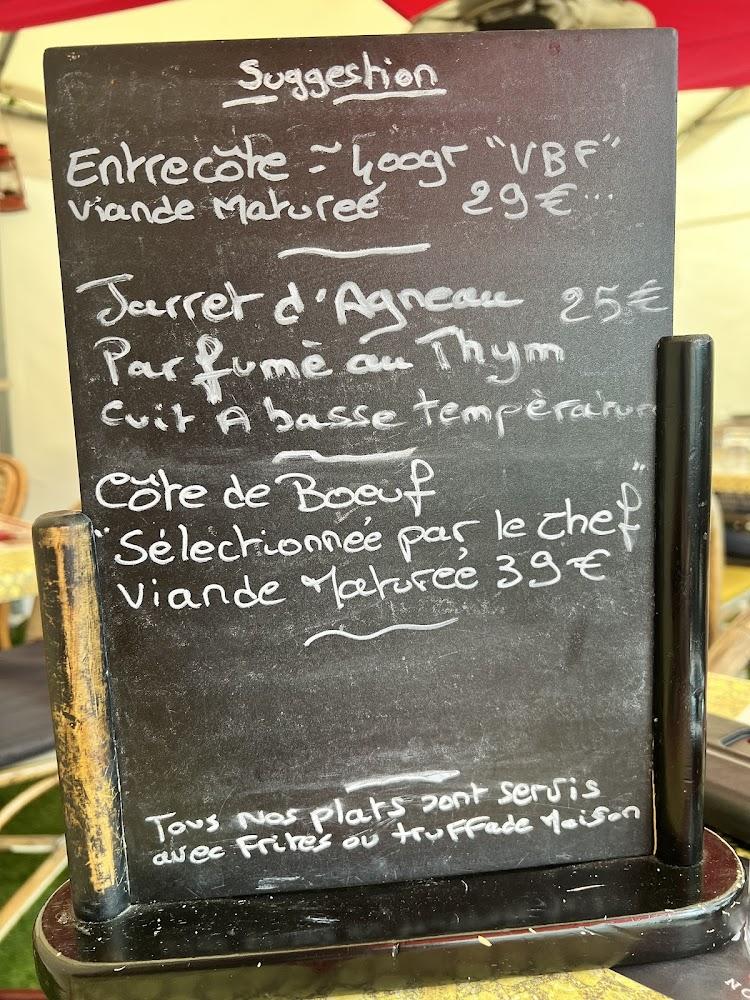 Suggestion
Entrecôte ≃ 400gr "VBF"
Viande Maturée 29€...
Jarret d'Agneau 25€
Parfumè au Thym
cuit A basse tempèrature
Côte de Boeuf
"Sélectionnée par le chef"
Viande Maturée 39€
Tous Nos plats sont servis
avec Frites ou truFFade Maison